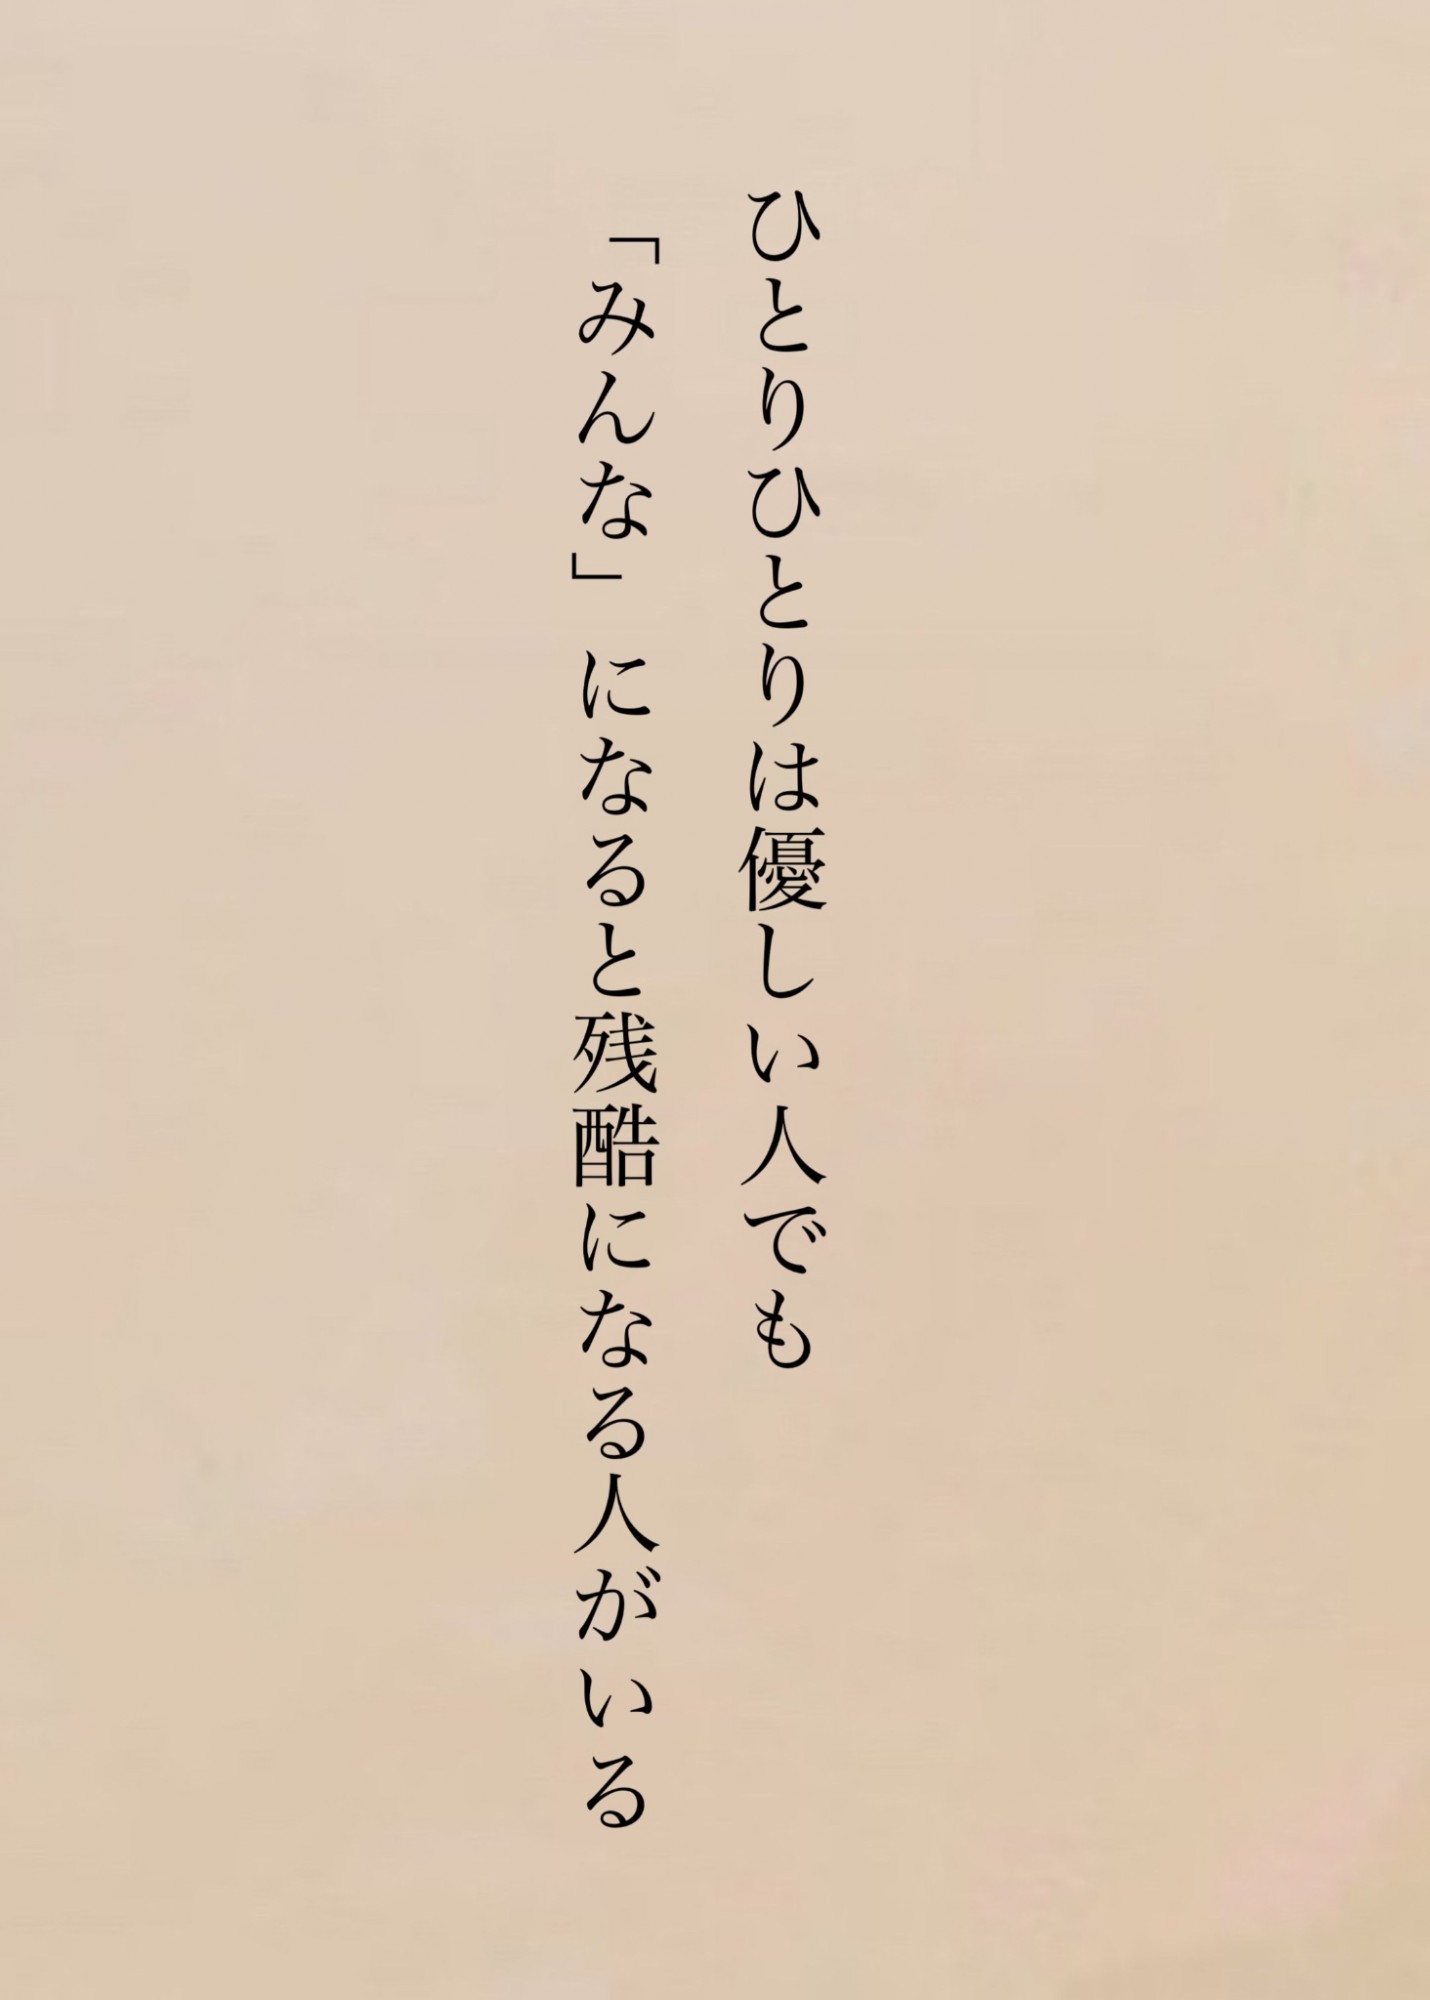 ひとりひとりは優しい人でも
「みんな」になると残酷になる人がいる